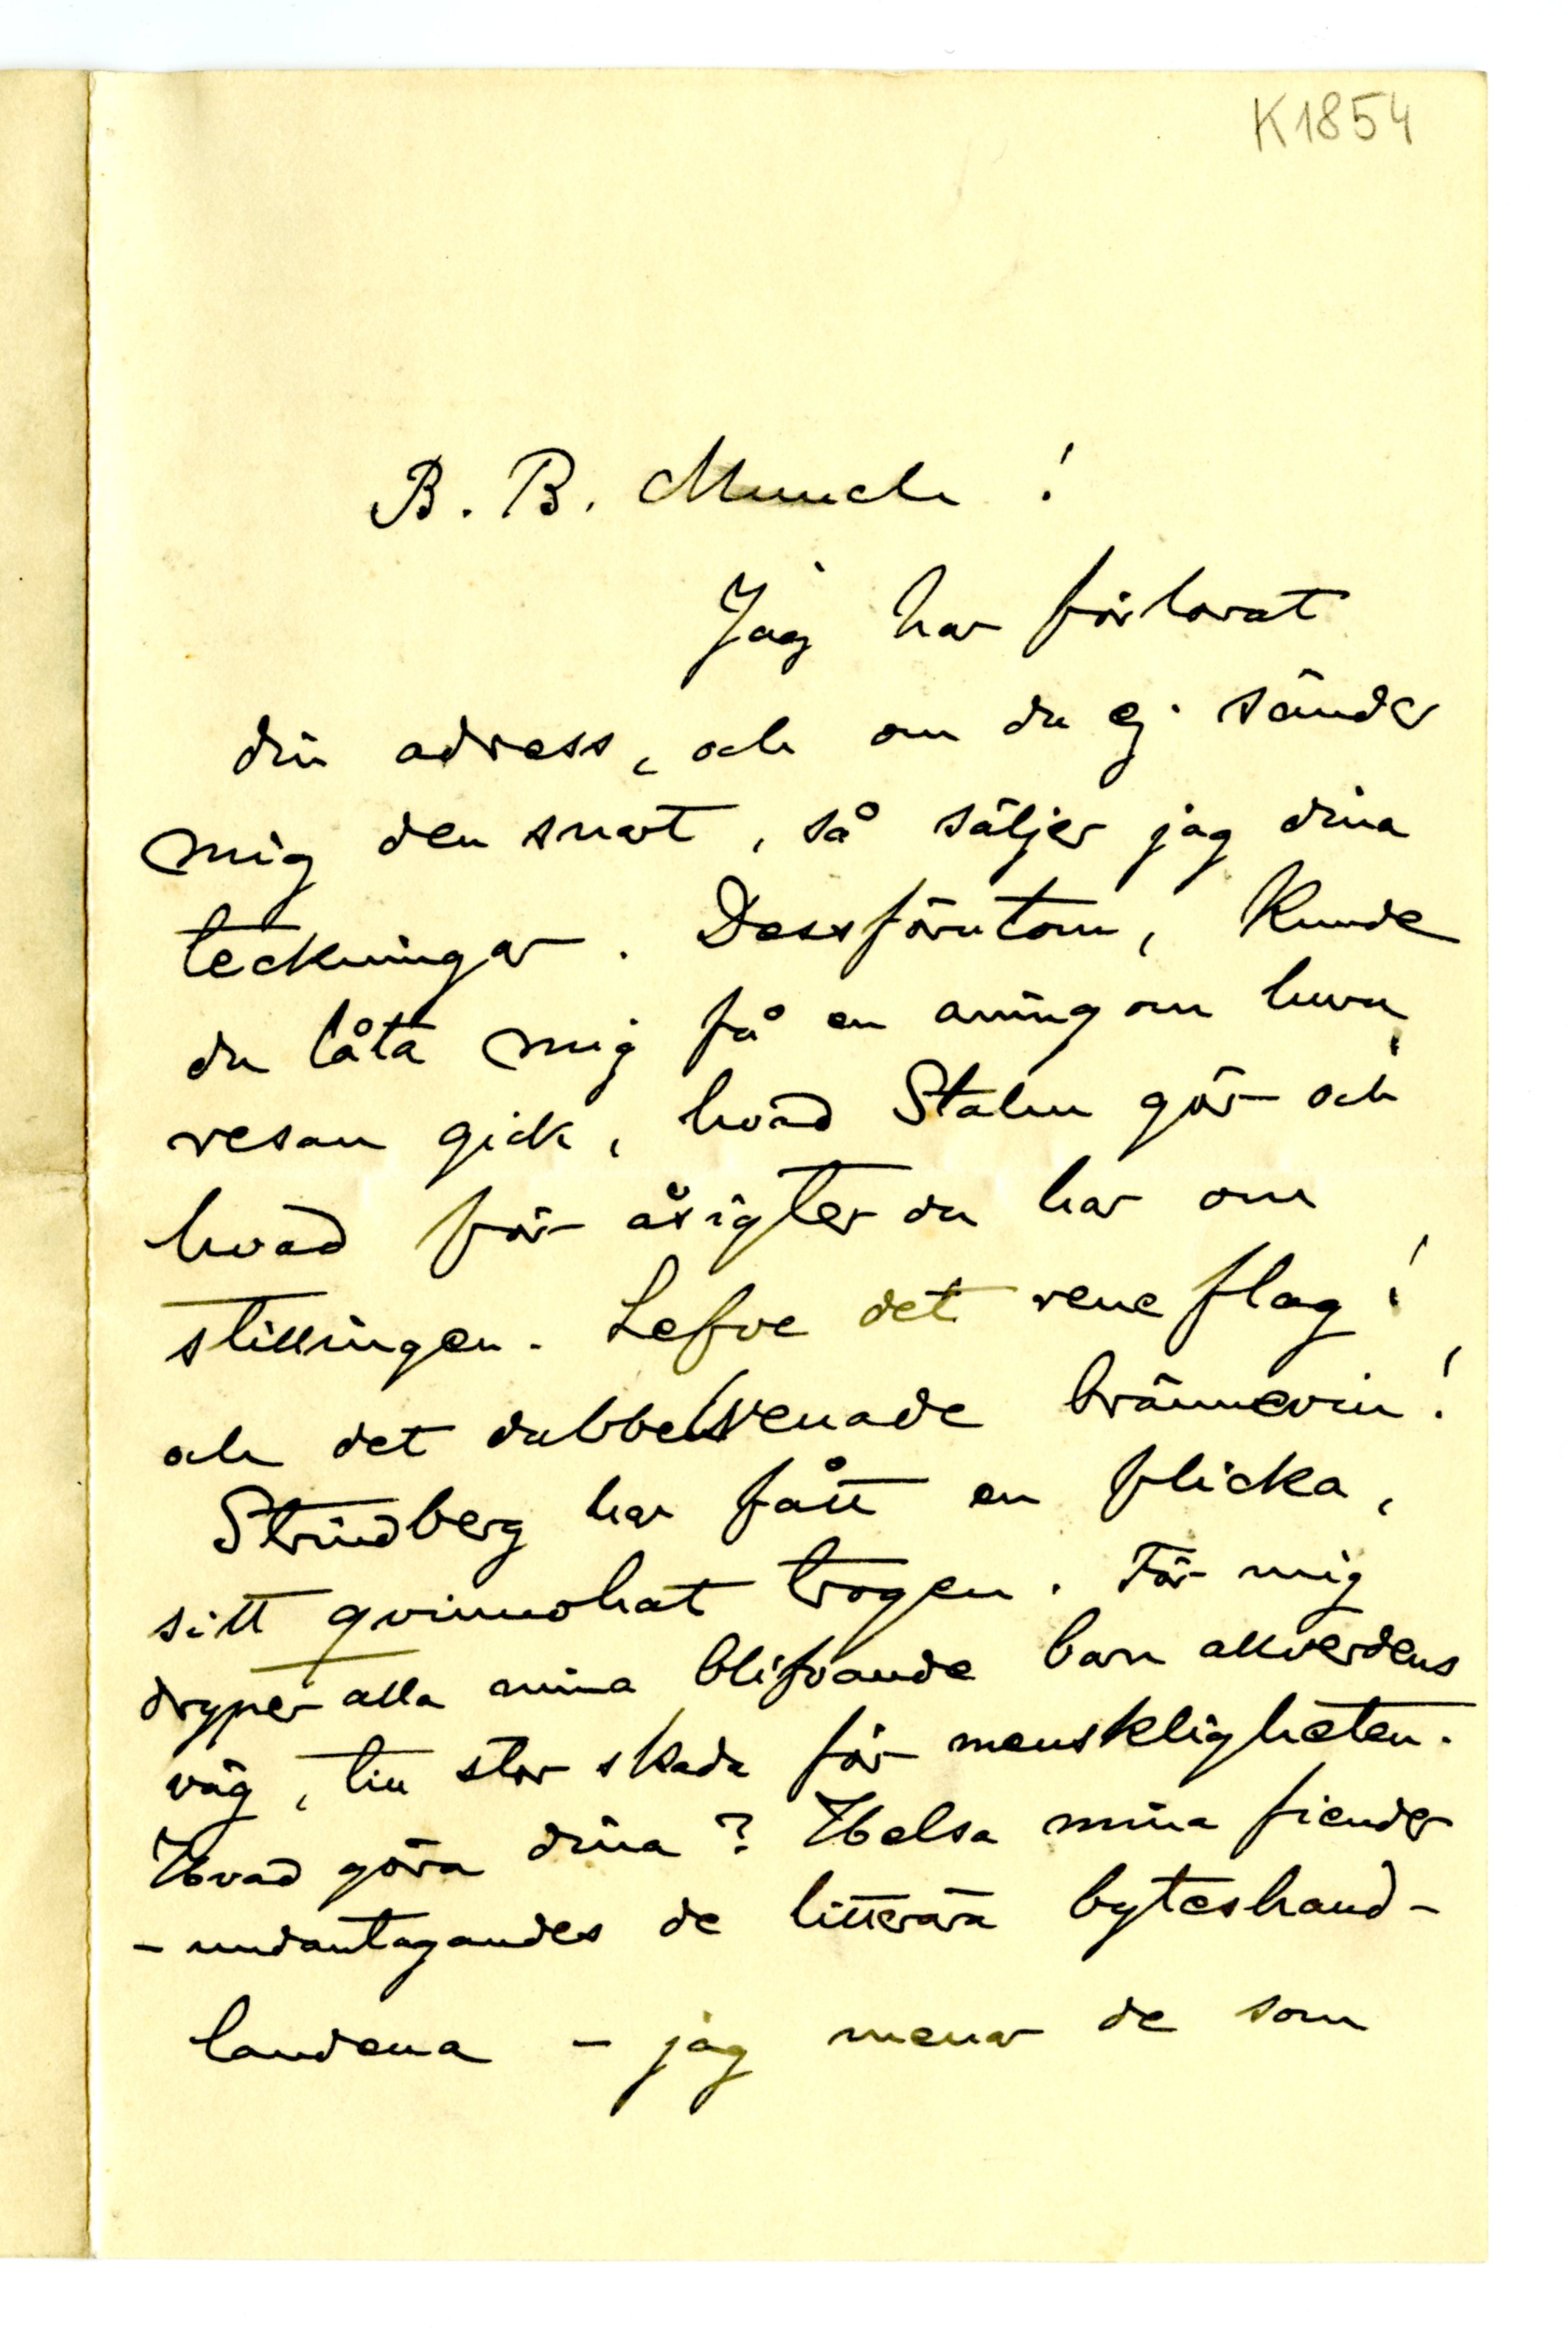 K1854
B. B. Munch!
Jag har förlorat
din adress, och om du ej sänder
mig den snart, så säljer jag dina
teckningar. Dessförutom, kunde
du låta mig få en aning om huru
resan gick, hvad Stalin gör och
hvad för åsigter du har om
stillingen. Lefve det rene flag!
och det dubbelrenade brännevin!
Strindberg har fått en flicka,
sitt qvinnohat trogen. För mig
dryper alla mina blifvande barn allverdens
väg, till stor skada för menskligheten.
Hvad göra dina? Helsa mina fiender
- undantagandes de litterära byteshand-
landena - jag menar de som